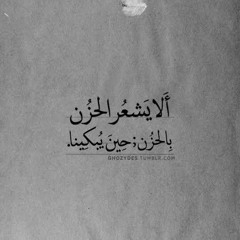 أَلا يَشعُر الحُزن
بِالحُزن; حِينَ يُبكِينا.
GHOZYDES.TUMBLR.COM